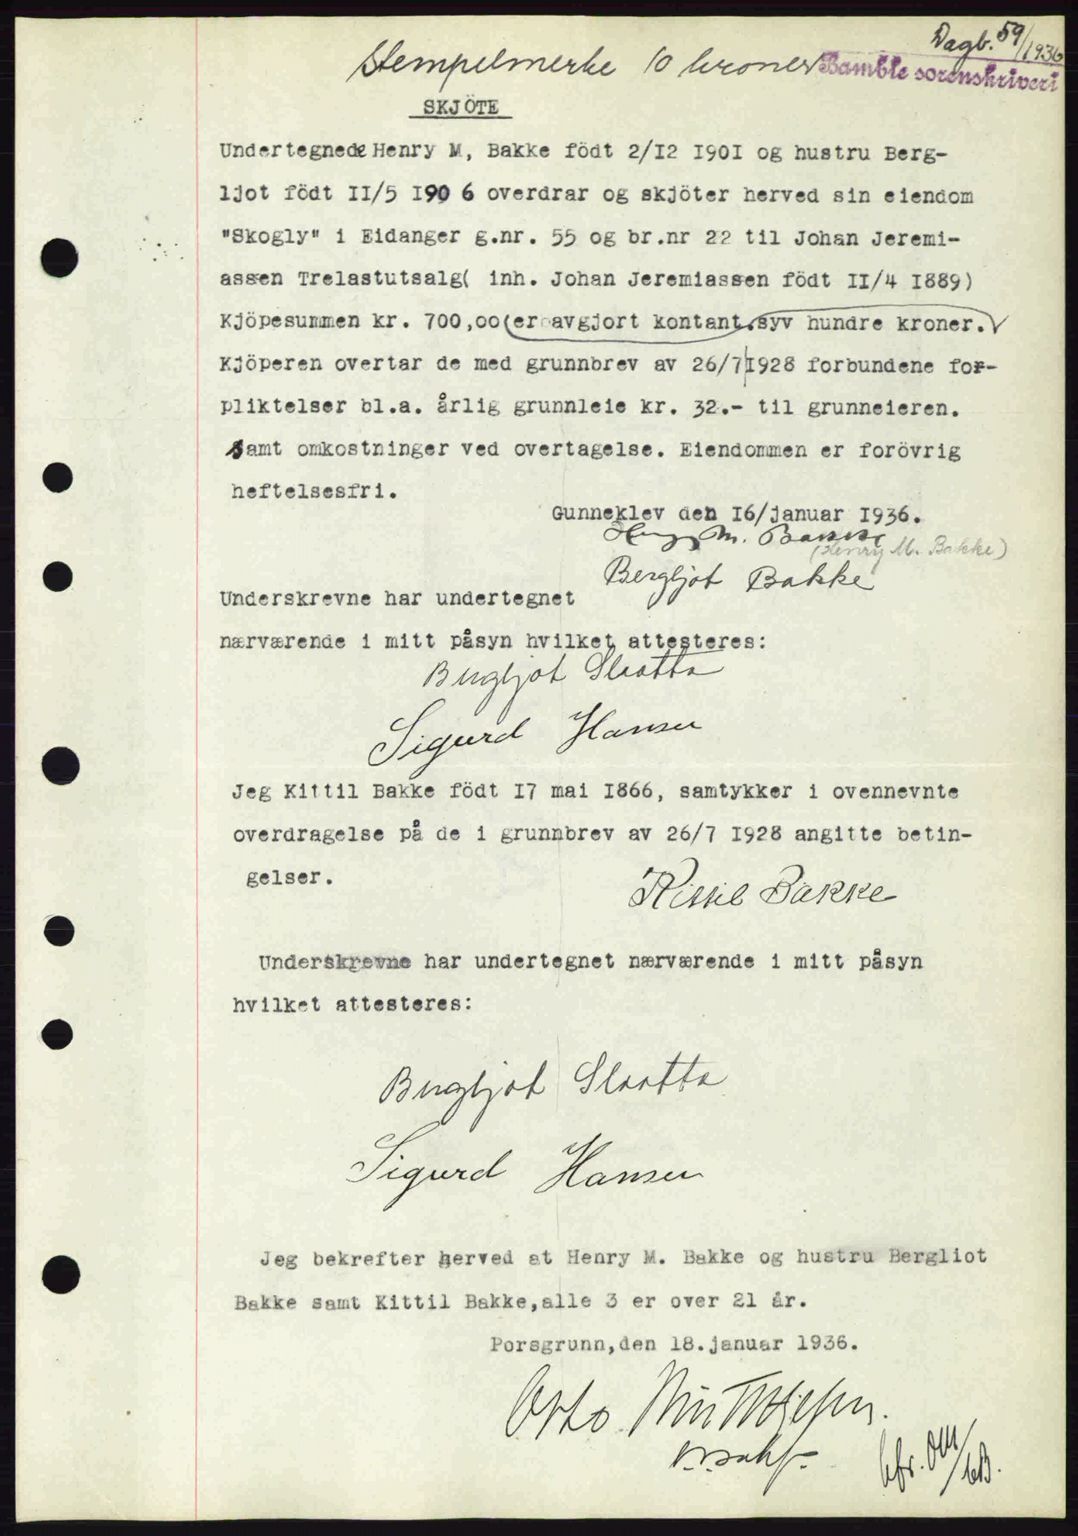 Dagb. 59/1936
Stempelmerke 10 kroner
Bamble sorenskriveri
SKJÖTE
Undertegnede Henry M, Bakke födt 2/I2 I90I og hustru Berg-
ljot födt II/5 I90 6 overdrar og skjöter herved sin eiendom
"Skogly" i Eidanger g.nr. 55 og br.nr 22 til Johan Jeremi-
assen Trelastutsalg( inh. Johan Jeremiassen födt II/4 I889)
Kjöpesummen kr. 700,00(er avgjort kontant.syv hundre kroner.
Kjöperen overtar de med grunnbrev av 26/7 I928 forbundene for-
pliktelser bl.a. årlig grunnleie kr. 32.- til grunneieren.
samt omkostninger ved overtagelse. Eiendommen er forövrig
heftelsesfri.
Gunneklev den I6/januar I936.
Henry M. Bakke
(Henry M. Bakke)
Bergljot Bakke
Underskrevne har undertegnet
nærværende i mitt påsyn hvilket attesteres:
Bergljot Slaatta
Sigurd Hansen
Jeg Kittil Bakke födt I7 mai I866, samtykker i ovennevnte
overdragelse på de i grunnbrev av 26/7 I928 angitte betin-
gelser.
Kittil Bakke
Underskrevne har undertegnet nærværende i mitt påsyn
hvilket attesteres:
Bergljot Slaatta
Sigurd Hansen
Jeg bekrefter herved at Henry M. Bakke og hustru Bergliot
Bakke samt Kittil Bakke,alle 3 er over 21 år.
Porsgrunn,den 18.januar 1936.
Otto